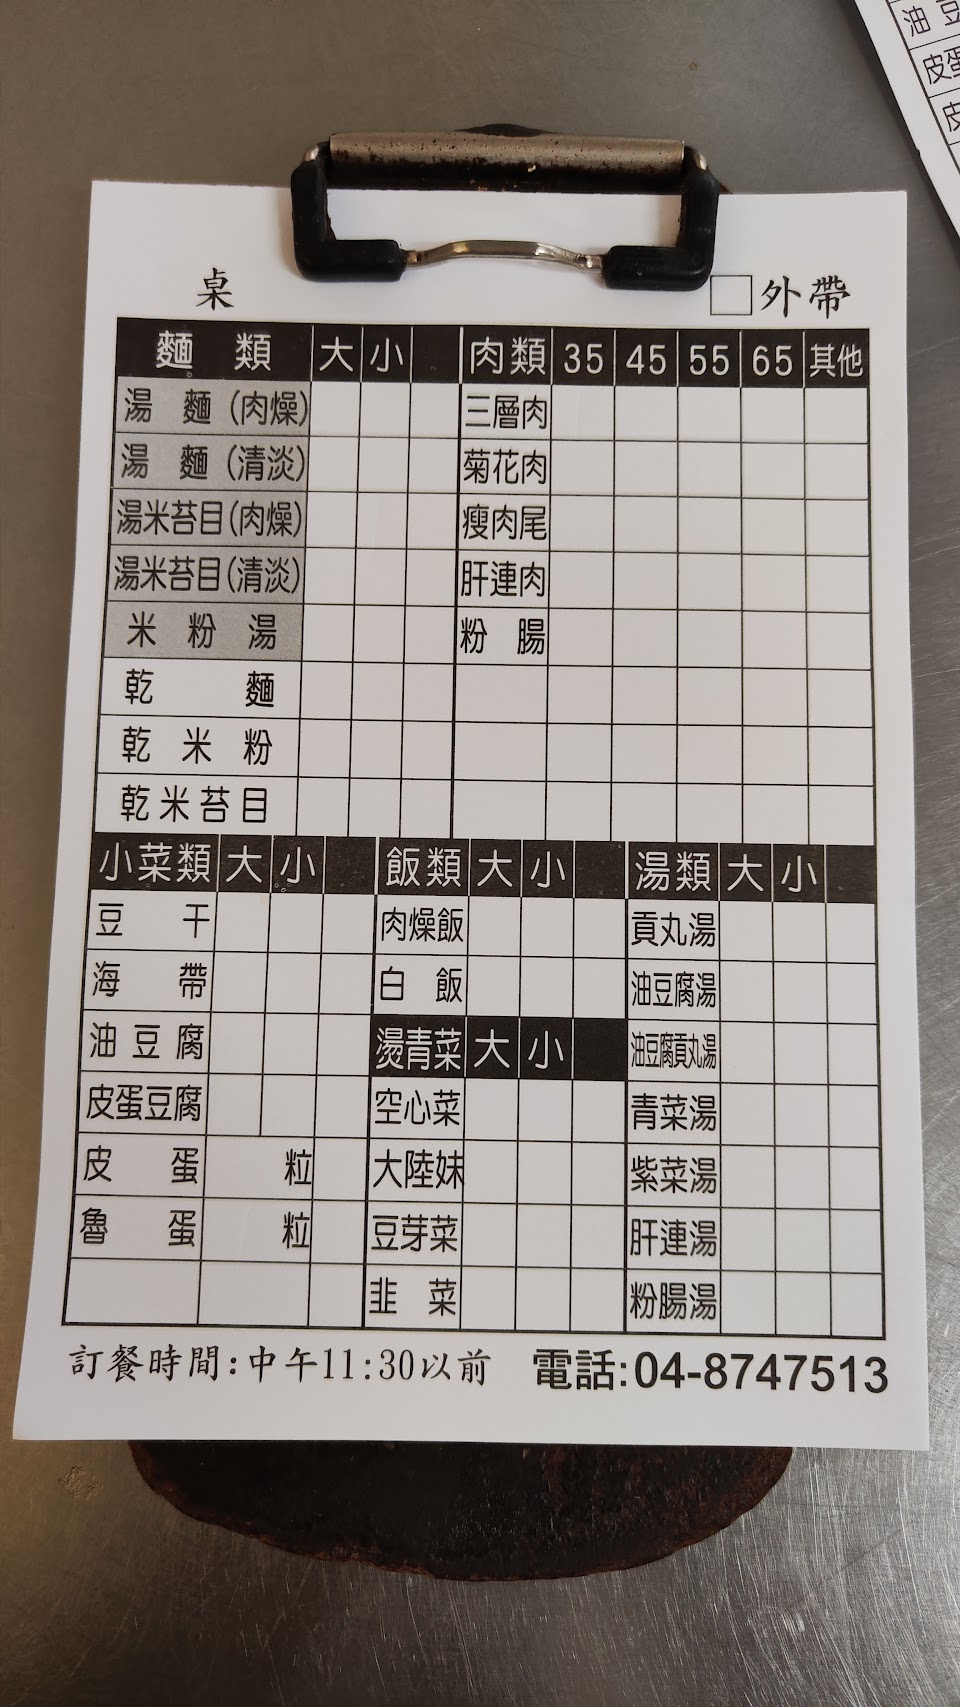 桌 外帶
麵類 大 小 肉類 35 45 55 65 其他
湯麵(肉燥) 三層肉
湯麵(清淡) 菊花肉
湯米苔目(肉燥) 瘦肉尾
湯米苔目(清淡) 肝連肉
米粉湯 粉腸
乾麵
乾米粉
乾米苔目
小菜類 大 小 飯類 大 小 湯類 大 小
豆干 肉燥飯 貢丸湯
海帶 白飯 油豆腐湯
油豆腐 燙青菜 大 小 油豆腐貢丸湯
皮蛋豆腐 空心菜 青菜湯
皮蛋 粒 大陸妹 紫菜湯
魯蛋 粒 豆芽菜 肝連湯
韭菜 粉腸湯
訂餐時間:中午11:30以前 電話:04-8747513
油豆
皮蛋